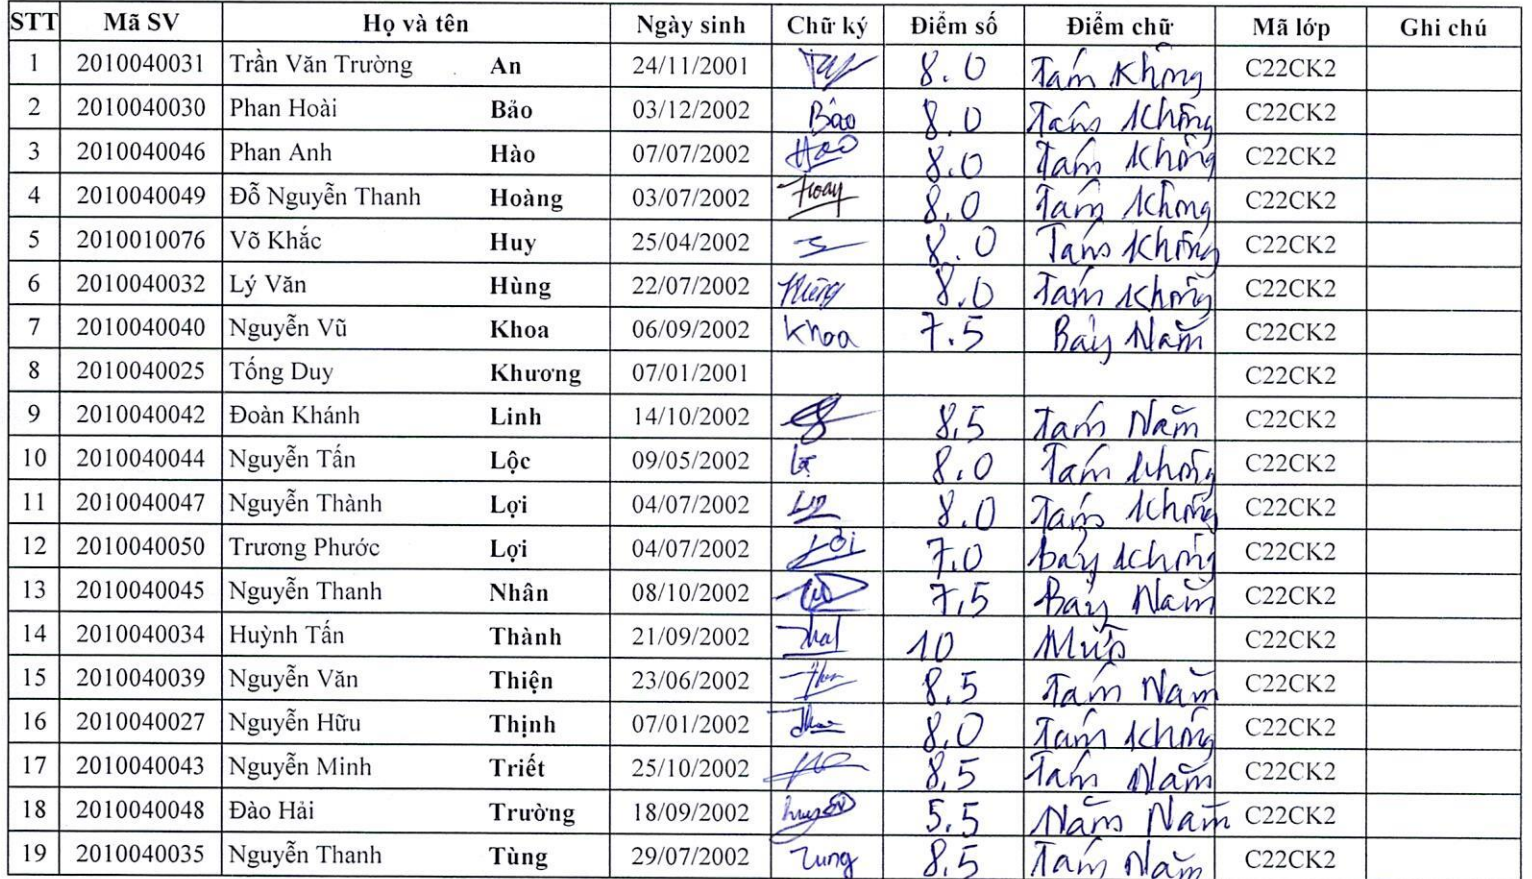 STT Mã SV Họ và tên Ngày sinh Chữ ký Điểm số Điểm chữ Mã lớp Ghi chú
1 2010040031 Trần Văn Trường An 24/11/2001 8.0 Tám Không C22CK2
2 2010040030 Phan Hoài Bảo 03/12/2002 Bảo 8.0 Tám Không C22CK2
3 2010040046 Phan Anh Hào 07/07/2002 Hào 8.0 Tám Không C22CK2
4 2010040049 Đỗ Nguyễn Thanh Hoàng 03/07/2002 8.0 Tám Không C22CK2
5 2010010076 Võ Khắc Huy 25/04/2002 8.0 Tám Không C22CK2
6 2010040032 Lý Văn Hùng 22/07/2002 Hùng 8.0 Tám Không C22CK2
7 2010040040 Nguyễn Vũ Khoa 06/09/2002 Khoa 7.5 Bảy Năm C22CK2
8 2010040025 Tống Duy Khương 07/01/2001 C22CK2
9 2010040042 Đoàn Khánh Linh 14/10/2002 8,5 Tám Năm C22CK2
10 2010040044 Nguyễn Tấn Lộc 09/05/2002 8.0 Tám Không C22CK2
11 2010040047 Nguyễn Thành Lợi 04/07/2002 8.0 Tám Không C22CK2
12 2010040050 Trương Phước Lợi 04/07/2002 Lợi 7,0 bảy Không C22CK2
13 2010040045 Nguyễn Thanh Nhân 08/10/2002 7,5 Bảy Năm C22CK2
14 2010040034 Huỳnh Tấn Thành 21/09/2002 10 Mười C22CK2
15 2010040039 Nguyễn Văn Thiện 23/06/2002 8.5 Tám Năm C22CK2
16 2010040027 Nguyễn Hữu Thịnh 07/01/2002 8.0 Tám Không C22CK2
17 2010040043 Nguyễn Minh Triết 25/10/2002 8,5 Tám Năm C22CK2
18 2010040048 Đào Hải Trường 18/09/2002 5.5 Năm Năm C22CK2
19 2010040035 Nguyễn Thanh Tùng 29/07/2002 Tung 8.5 Tám Năm C22CK2